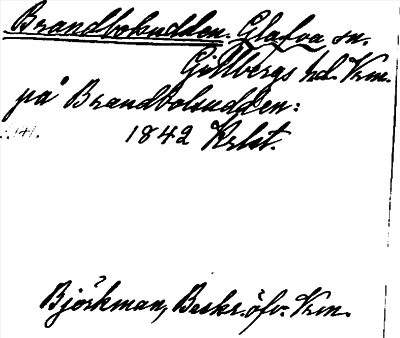 Brandbokudden. Glafva sn.
Gillbergs hd. Vrm.
på Brandbolsudden:
1842 Krlst.
Björkman, Beskr. öfv. Vrm.